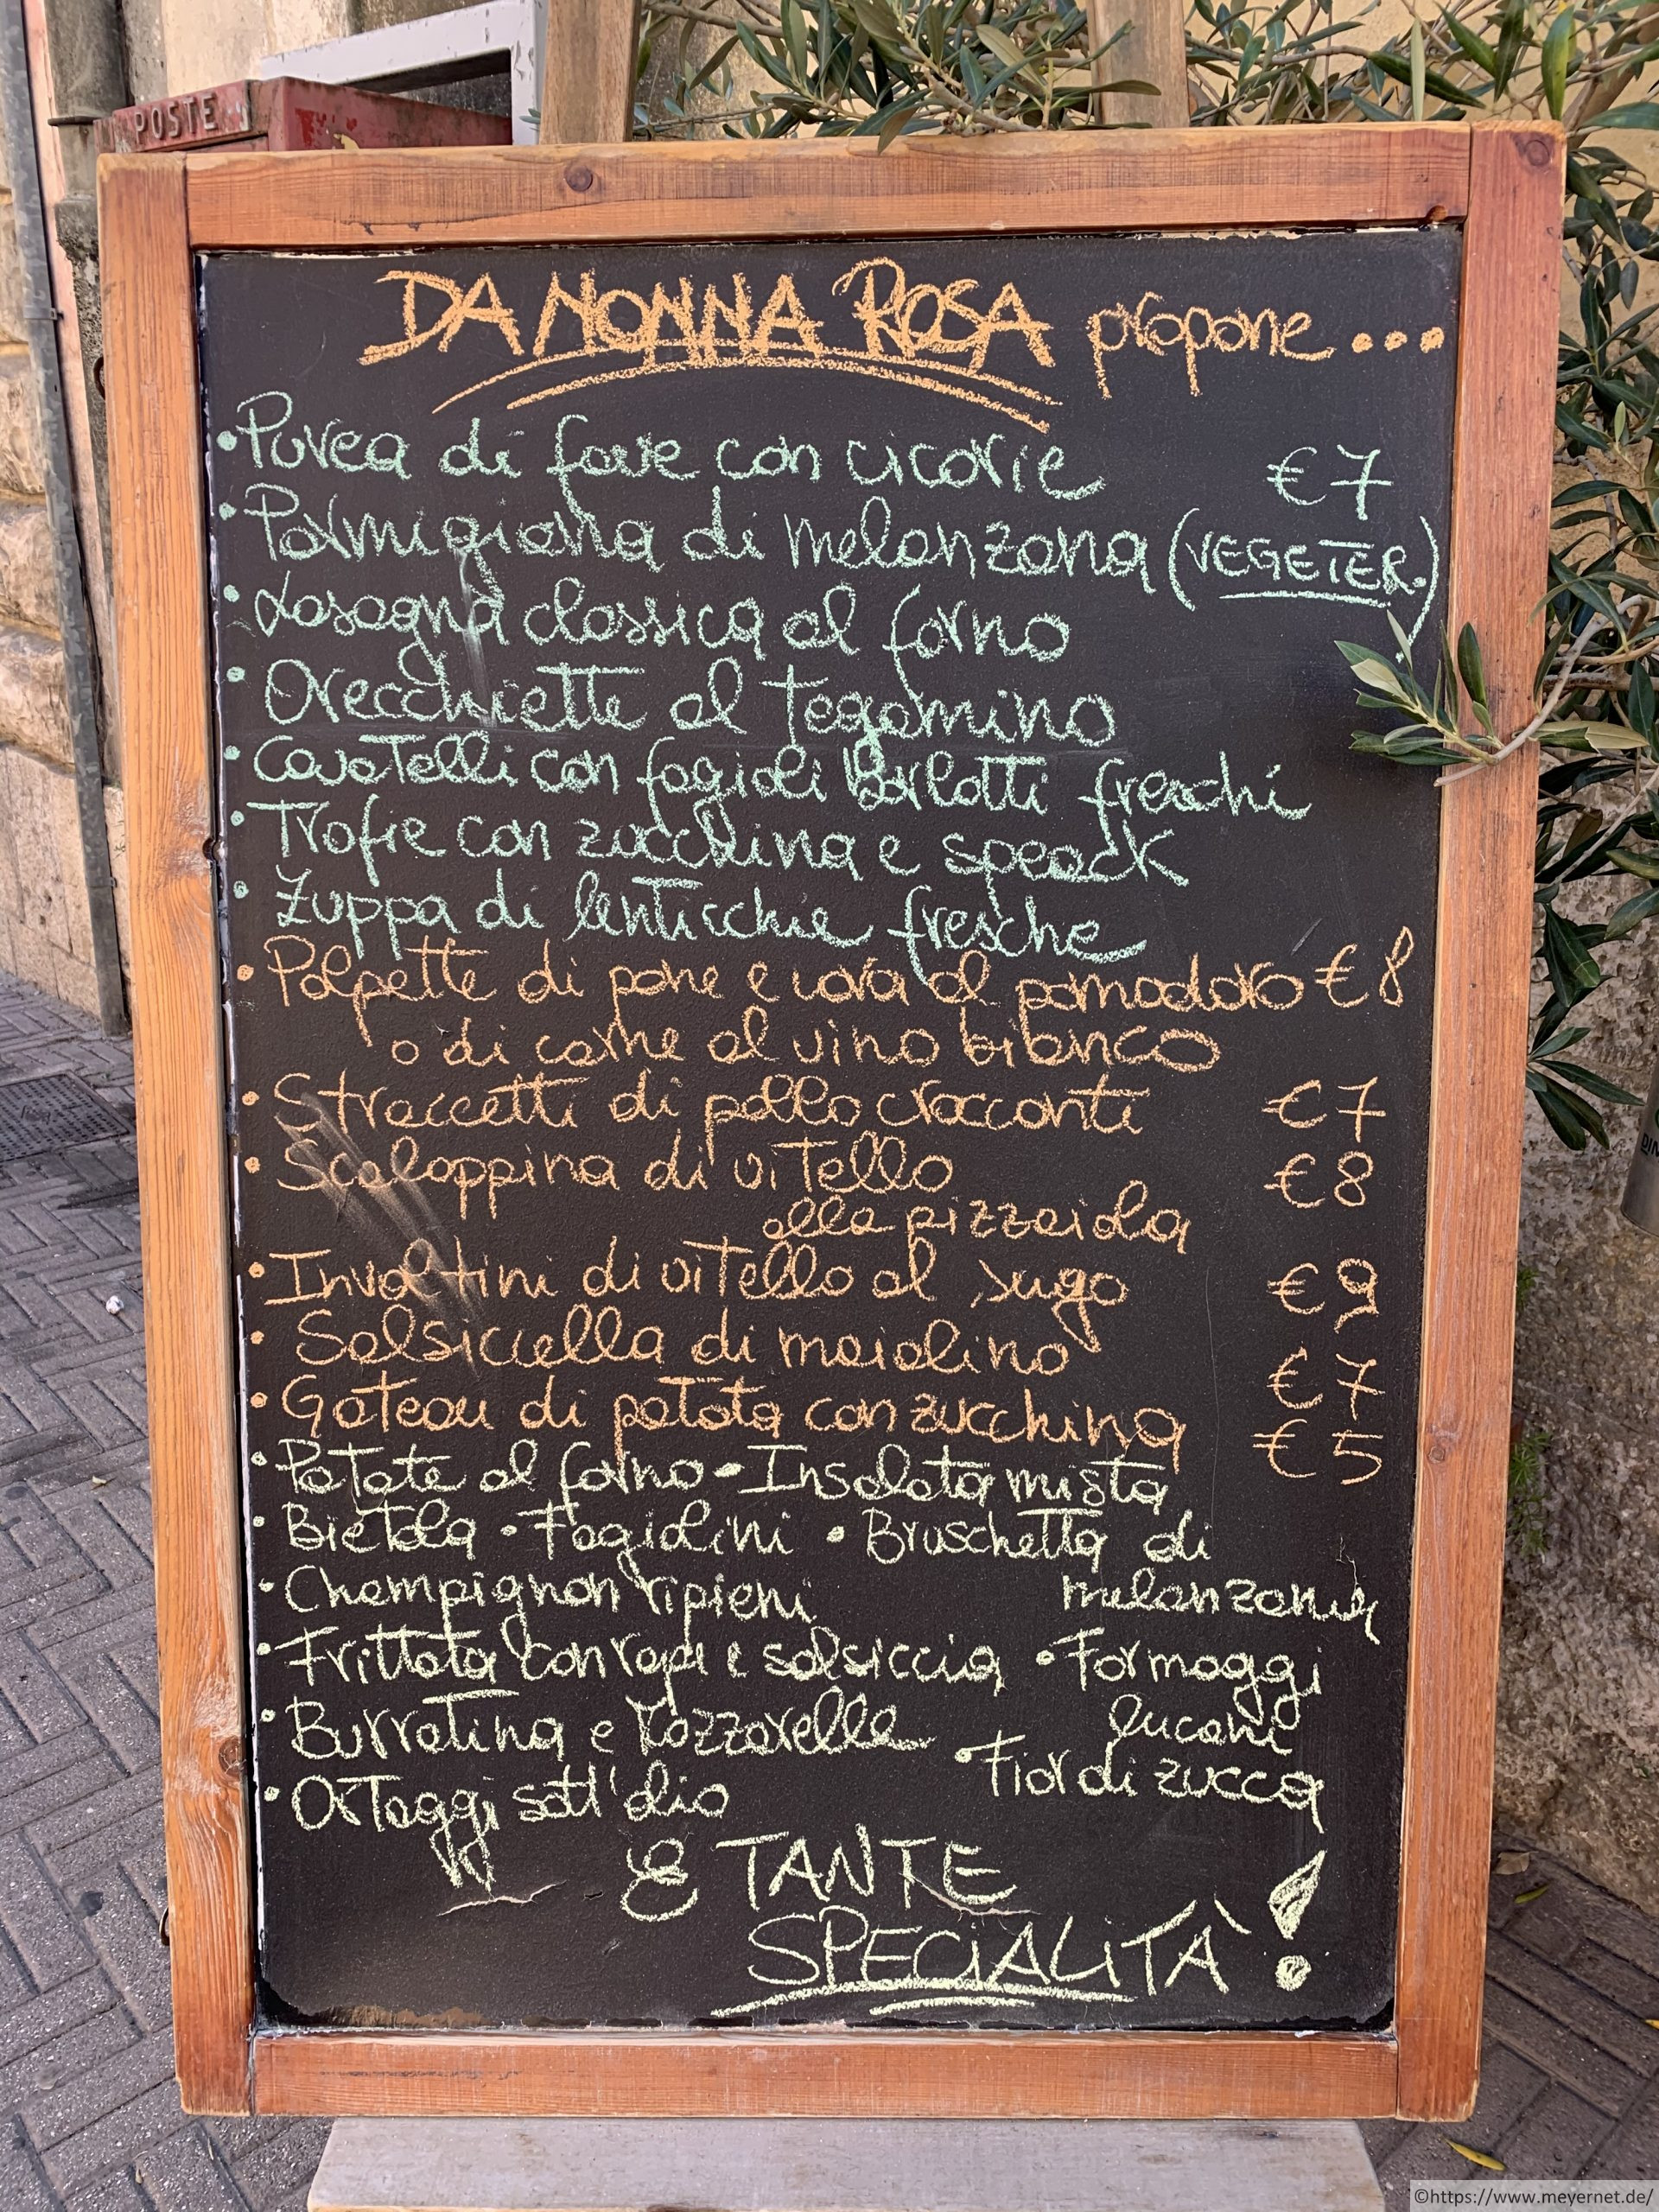 POSTE
DA NONNA ROSA propone...
• Purea di fave con cicorie €7
• Parmigiana di melanzana (VEGETER.)
• Lasagna classica al forno
• Orecchiette al tegamino
• Cavatelli con fagioli Borlotti freschi
• Trofie con zucchina e speack
• Zuppa di lenticchie fresche
• Polpette di pane e uova al pomodoro €8
o di carne al vino bianco
• Straccetti di pollo croccanti €7
• Scaloppina di vitello €8
alla pizzaiola
• Involtini di vitello al sugo €9
• Salsiccella di maialino €7
• Gateau di patata con zucchina €5
• Patate al forno • Insalata mista
• Bietola • Fagiolini • Bruschetta di
melanzana
• Champignon ripieni
• Frittata con rape e salsiccia • Formaggi
lucani
• Burratina e Mozzarella
• Fior di zucca
• Ortaggi sott'olio
E TANTE
SPECIALITÀ!
©https://www.meyernet.de/